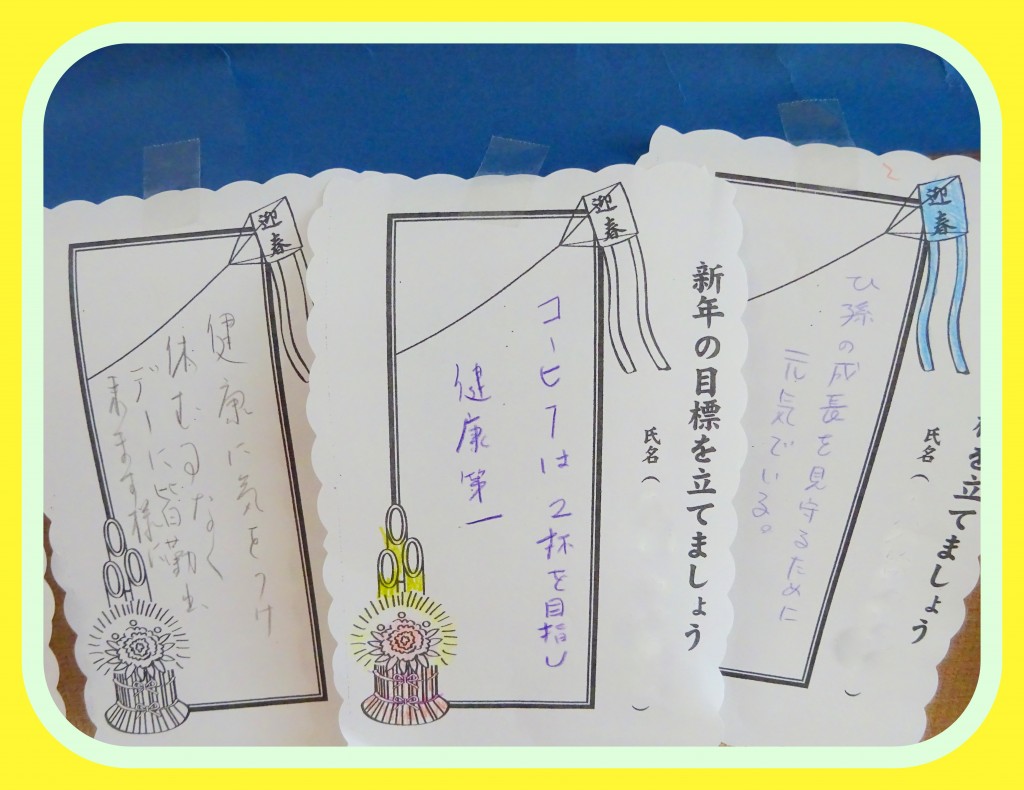 迎春
健康に気をつけ
休む事なく
デーに皆勤出
来ます様に
迎春
新年の目標を立てましょう
氏名（　）
コーヒーは2杯を目指し
健康第一
迎春
を立てましょう
氏名（　）
ひ孫の成長を見守るために
元気でいる。